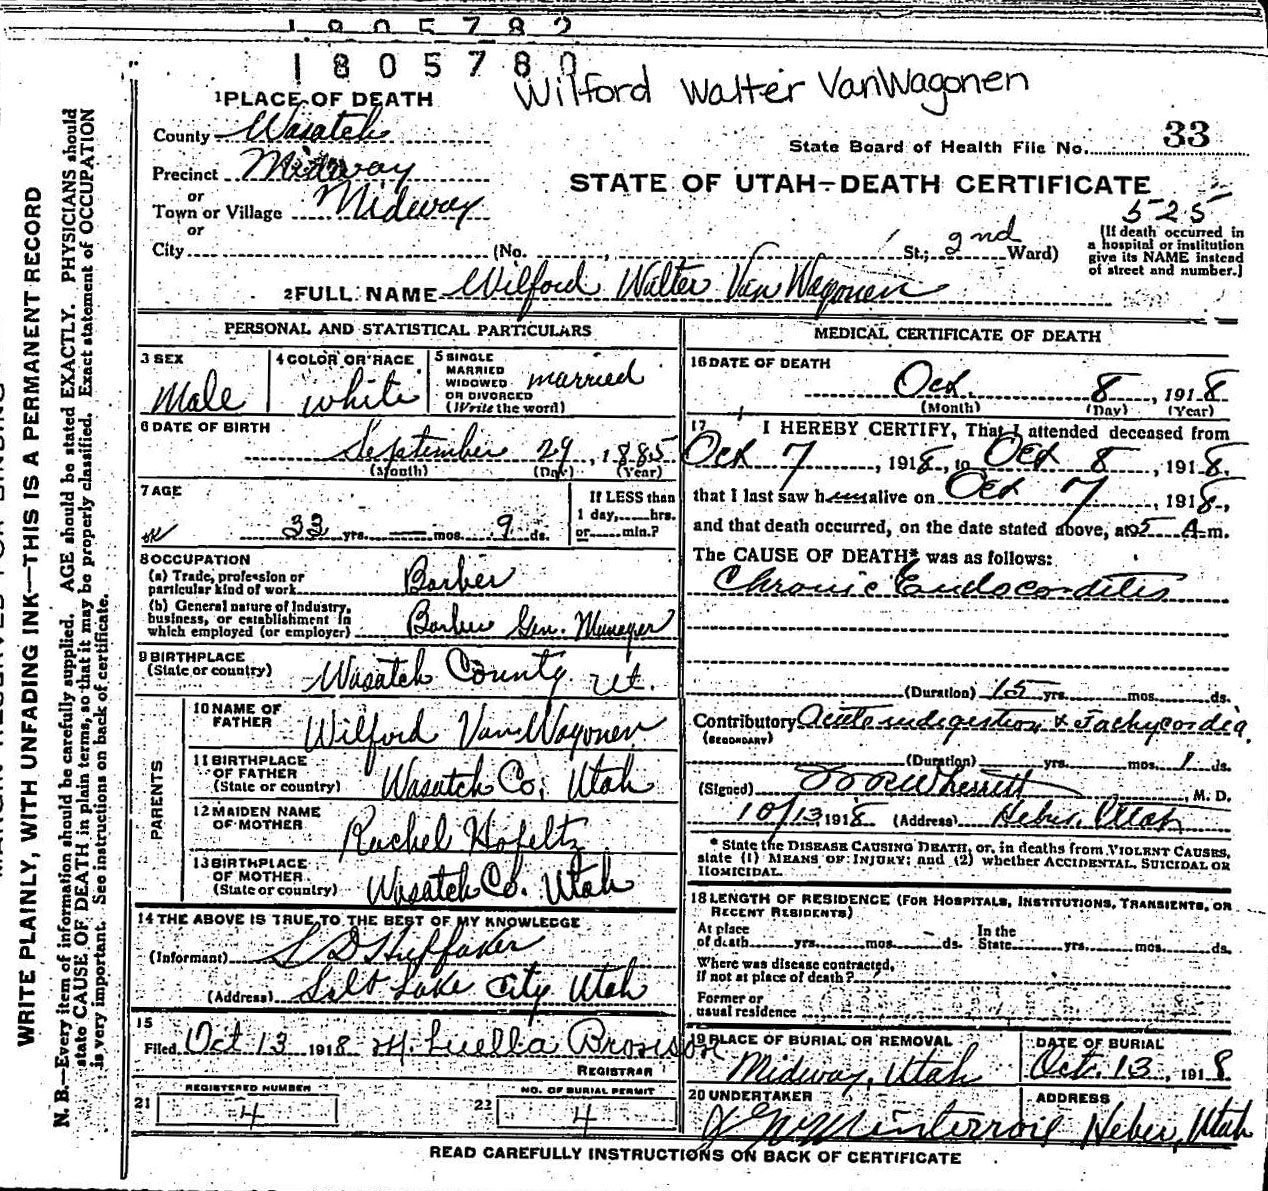 1805782
1805780
Wilford Walter VanWagonen
1 PLACE OF DEATH
County Wasatch
State Board of Health File No. 33
Precinct Midway
STATE OF UTAH—DEATH CERTIFICATE
or
Town or Village Midway
525
or
City (No. St.; 2nd Ward)
(If death occurred in
a hospital or institution
give its NAME instead
of street and number.)
2 FULL NAME Wilford Walter Van Wagonen
PERSONAL AND STATISTICAL PARTICULARS
3 SEX
Male
4 COLOR OR RACE
white
5 SINGLE
MARRIED
WIDOWED
OR DIVORCED
(Write the word)
married
6 DATE OF BIRTH
September 29, 1885
(Month) (Day) (Year)
7 AGE
33 yrs. mos. 9 ds.
If LESS than
1 day, hrs.
or min.?
8 OCCUPATION
(a) Trade, profession or
particular kind of work Barber
(b) General nature of Industry,
business, or establishment in
which employed (or employer) Barber Gen. Manager
9 BIRTHPLACE
(State or country) Wasatch County Ut.
PARENTS
10 NAME OF
FATHER Wilford Van Wagonen
11 BIRTHPLACE
OF FATHER
(State or country) Wasatch Co, Utah
12 MAIDEN NAME
OF MOTHER Rachel Hofeltz
13 BIRTHPLACE
OF MOTHER
(State or country) Wasatch Co. Utah
14 THE ABOVE IS TRUE TO THE BEST OF MY KNOWLEDGE
(Informant) S D Huffaker
(Address) Salt Lake City Utah
15
Filed Oct 13 1918 M. Luella Bronson
REGISTRAR
REGISTERED NUMBER
21 4
NO. OF BURIAL PERMIT
22 4
MEDICAL CERTIFICATE OF DEATH
16 DATE OF DEATH
Oct 8, 1918
(Month) (Day) (Year)
17 I HEREBY CERTIFY, That I attended deceased from
Oct 7, 1918, to Oct 8, 1918.
that I last saw h alive on Oct 7, 1918,
and that death occurred, on the date stated above, at 5 A m.
The CAUSE OF DEATH* was as follows:
Chronic Endocarditis
(Duration) 15 yrs. mos. ds.
Contributory Acute indigestion & Tachycordia.
(SECONDARY)
(Duration) yrs. mos. 1 ds.
(Signed) Wherritt, M. D.
10/13, 1918 (Address) Heber, Utah
* State the DISEASE CAUSING DEATH, or, in deaths from VIOLENT CAUSES,
state (1) MEANS OF INJURY; and (2) whether ACCIDENTAL, SUICIDAL OR
HOMICIDAL.
18 LENGTH OF RESIDENCE (FOR HOSPITALS, INSTITUTIONS, TRANSIENTS, OR
RECENT RESIDENTS)
At place
of death yrs. mos. ds.
In the
State yrs. mos. ds.
Where was disease contracted,
if not at place of death?
Former or
usual residence
19 PLACE OF BURIAL OR REMOVAL
Midway, Utah
DATE OF BURIAL
Oct. 13, 1918.
20 UNDERTAKER
ADDRESS
Heber, Utah
READ CAREFULLY INSTRUCTIONS ON BACK OF CERTIFICATE
WRITE PLAINLY, WITH UNFADING INK—THIS IS A PERMANENT RECORD
N. B.—Every item of information should be carefully supplied. AGE should be stated EXACTLY. PHYSICIANS should
state CAUSE OF DEATH in plain terms, so that it may be properly classified. Exact statement of OCCUPATION
is very important. See instructions on back of certificate.